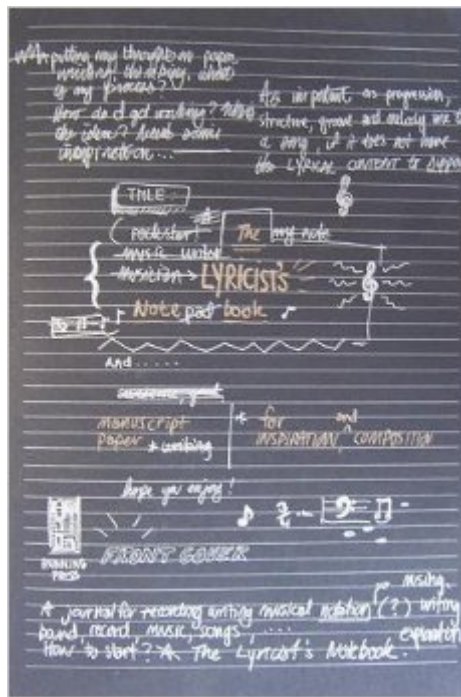 putting my thoughts on paper
my process?
How do I get writing?
the idea? Need some
inspiration...
As important as progression,
structure, groove and melody are to
a song, if it does not have
the LYRICAL CONTENT to support
TITLE
rockstar! The my note
music writer
musician LYRICIST'S
Note pad book
And .....
manuscript
paper + writing
for and
INSPIRATION, COMPOSITION
hope you enjoy!
RUNNING
PRESS
FRONT COVER
A journal for recording writing musical notation (?) writing
band, record, music, songs, ....
How to start? A The Lyricist's Notebook.